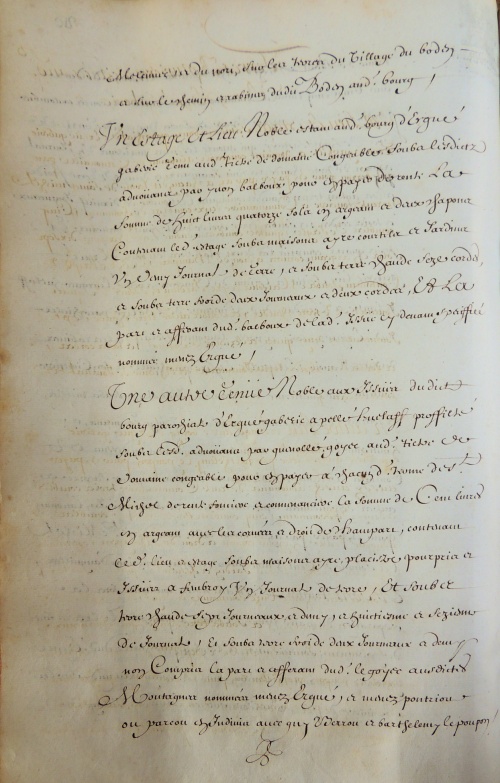 du nort, sur les terres du Village du boden
et sur le chemin dudit Boden aud. bourg /
Un Estage Et Lieu Noble estant aud. bourg d'Ergué
gaberic tenu aud. tittre de domaine Congeable soubz lesdictz
advouantz par yvon balbouz pour en payer de rente La
somme de huict livres quatorze solz en argeant et deux chapons
Contenant led. estage soubz maisons ayre courtilz et Jardins
Un demy Journal de terre, et soubz terre chaude seze cordes,
et soubz terre froide deux Journeaux et deux cordes, Et La
part et afferant dud. balbouz de lad. Issue cy devant speciffié
nommée menez Ergué /
Une autre Tenüe Noble aux Issues du dict
bourg paroissial d'Ergué gaberic apellé proffitté
soubz lesd. advouantz par guenollé goyec aud. tittre de
Domaine congeable pour en payer à chacun terme de St
Michel de rente fonciere et convenanciere la somme de Cent livres
en argeant avec les corvées et droit de champart, contenant
led. lieu et estage soubz maisons ayre placistre pourpris et
Issues a Un Journal de terre, Et soubz
terre chaude sept Journeaux et demy, et huictiesme et seziesme
de Journal, Et soubz terre froide deux Journaux et demy
non Compris la part et afferant dud. le goyec ausdictes
Montagnes nommées menez Ergué, et menez pontriou
ou parcou en Indivis avec guy Verrou et barthelemy le poupon /